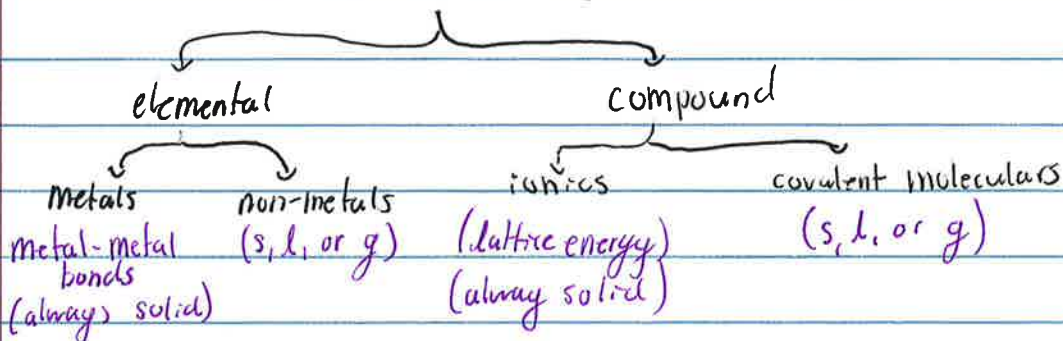 elemental compound
metals non-metals ionics covalent moleculars
metal-metal bonds (always solid) (s, l, or g) (lattice energy) (alway solid) (s, l, or g)